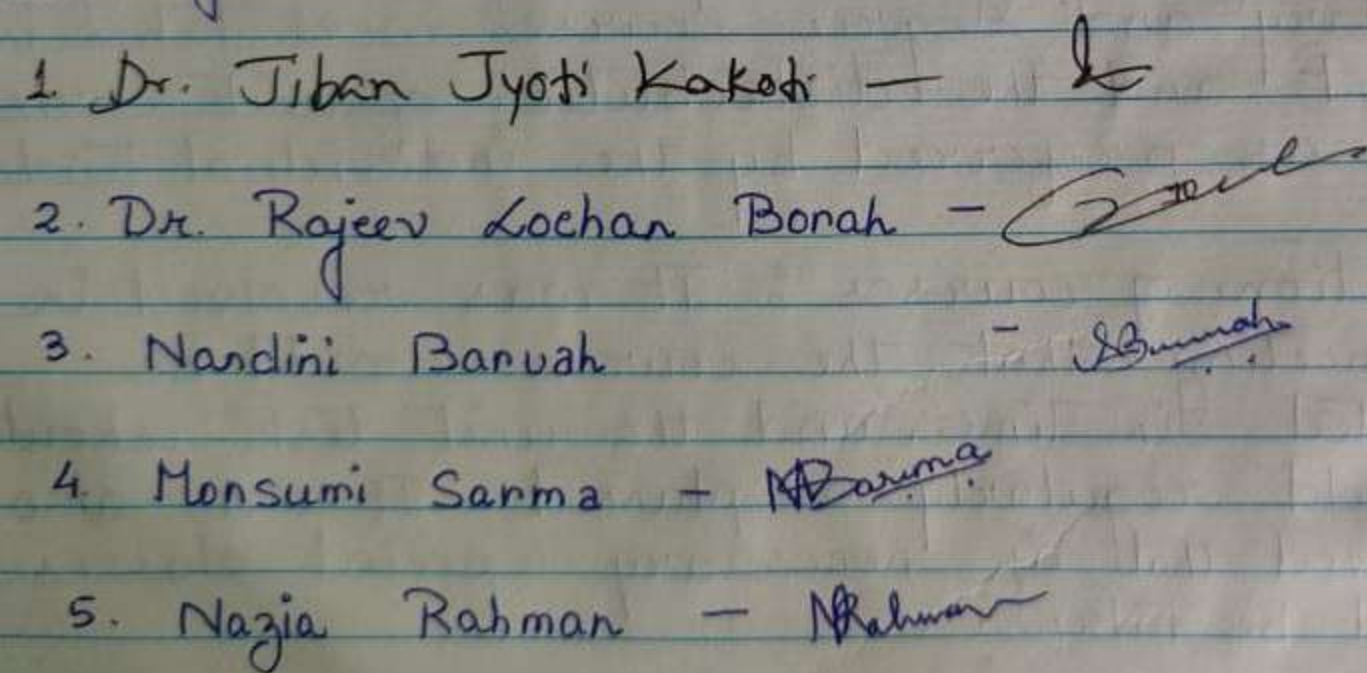 1. Dr. Jiban Jyoti Kakoti —
2. Dr. Rajeev Lochan Borah -
3. Nandini Baruah -
4. Monsumi Sarma -
5. Nazia Rahman - NRahman